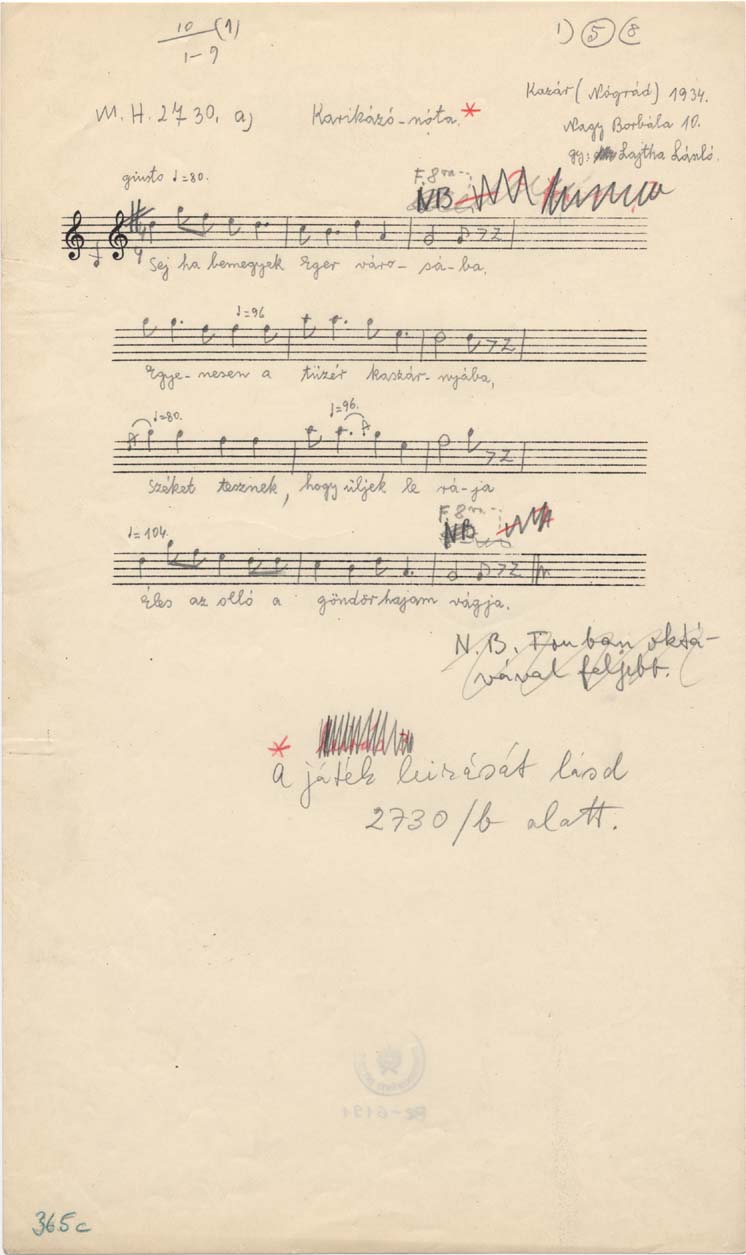 10 (1)
1–9
1) 5 (8
M. H. 2730. a)
Karikázó-nóta.*
Kazár (Nógrád) 1934.
Nagy Borbála 10.
gy: Lajtha László.
giusto ♩=80.
F. 8va
NB
Sej ha bemegyek Eger váro- sá- ba,
♩=96
Egye- nesen a tüzér kaszár- nyába,
♩=80.
♩=96.
Széket tesznek, hogy üljek le rá-ja
♩=104.
F. 8va
NB
Éles az olló a göndör hajam vágja.
N. B. Fonban oktá-
vával feljebb.
*
A játék leirását lásd
2730/b alatt.
365c